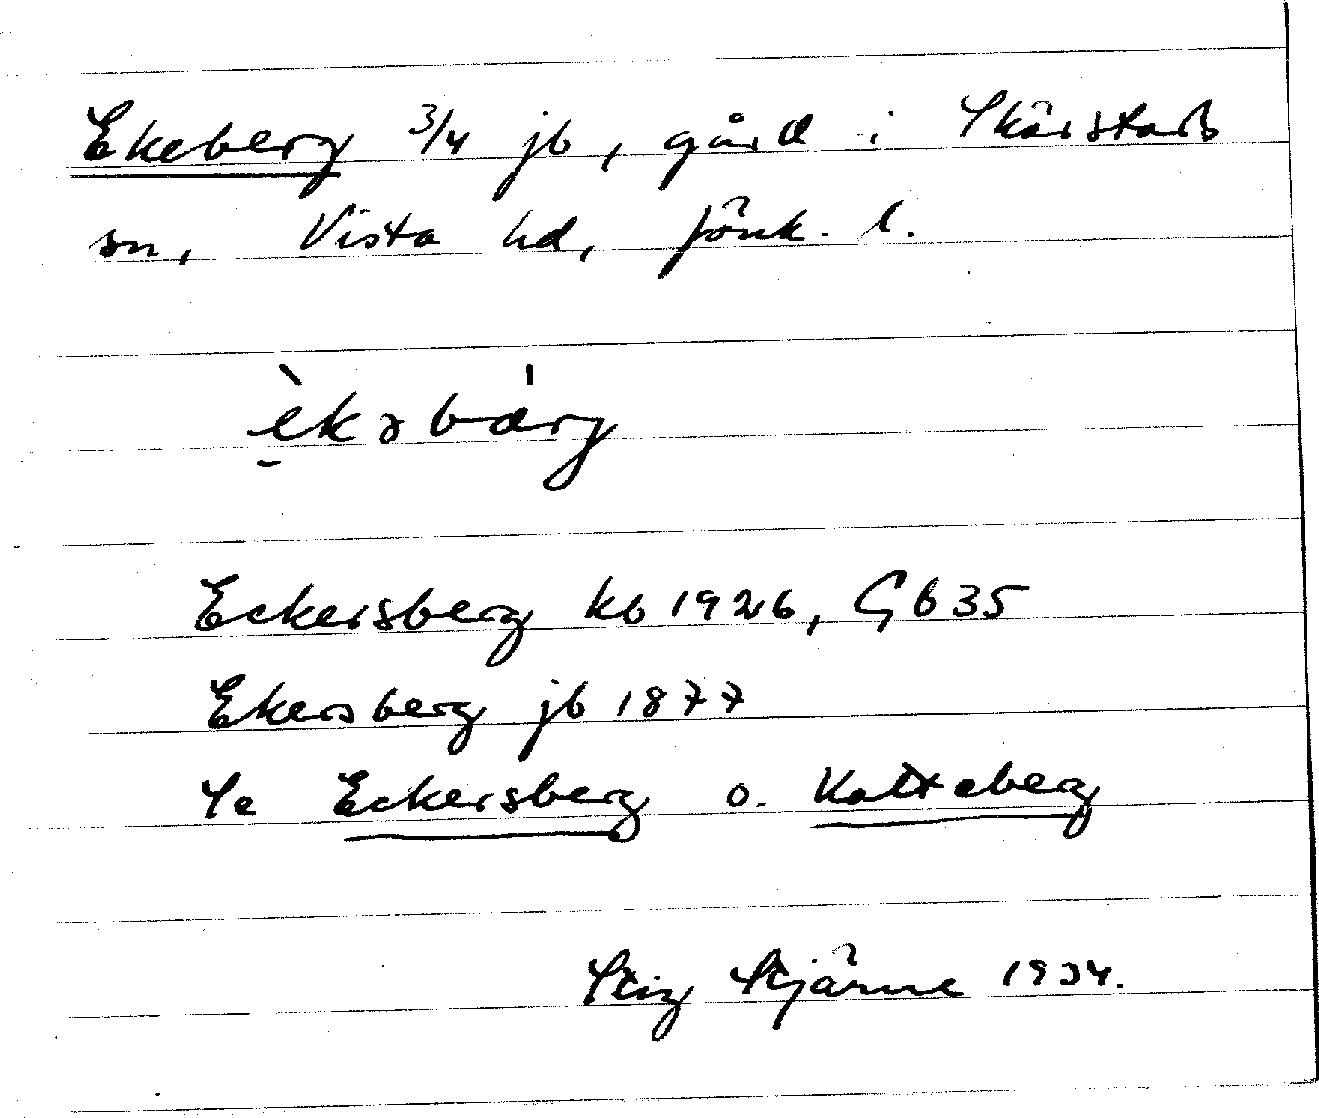 Ekeberg 3/4 jb, gård i Skärstads
sn, Vista hd, Jönk. l.
èkəbárg
Eckersberg kb 1926, Gb 35
Ekersberg jb 1877
Se Eckersberg o. Katteberg
Stig Stjärne 1934.